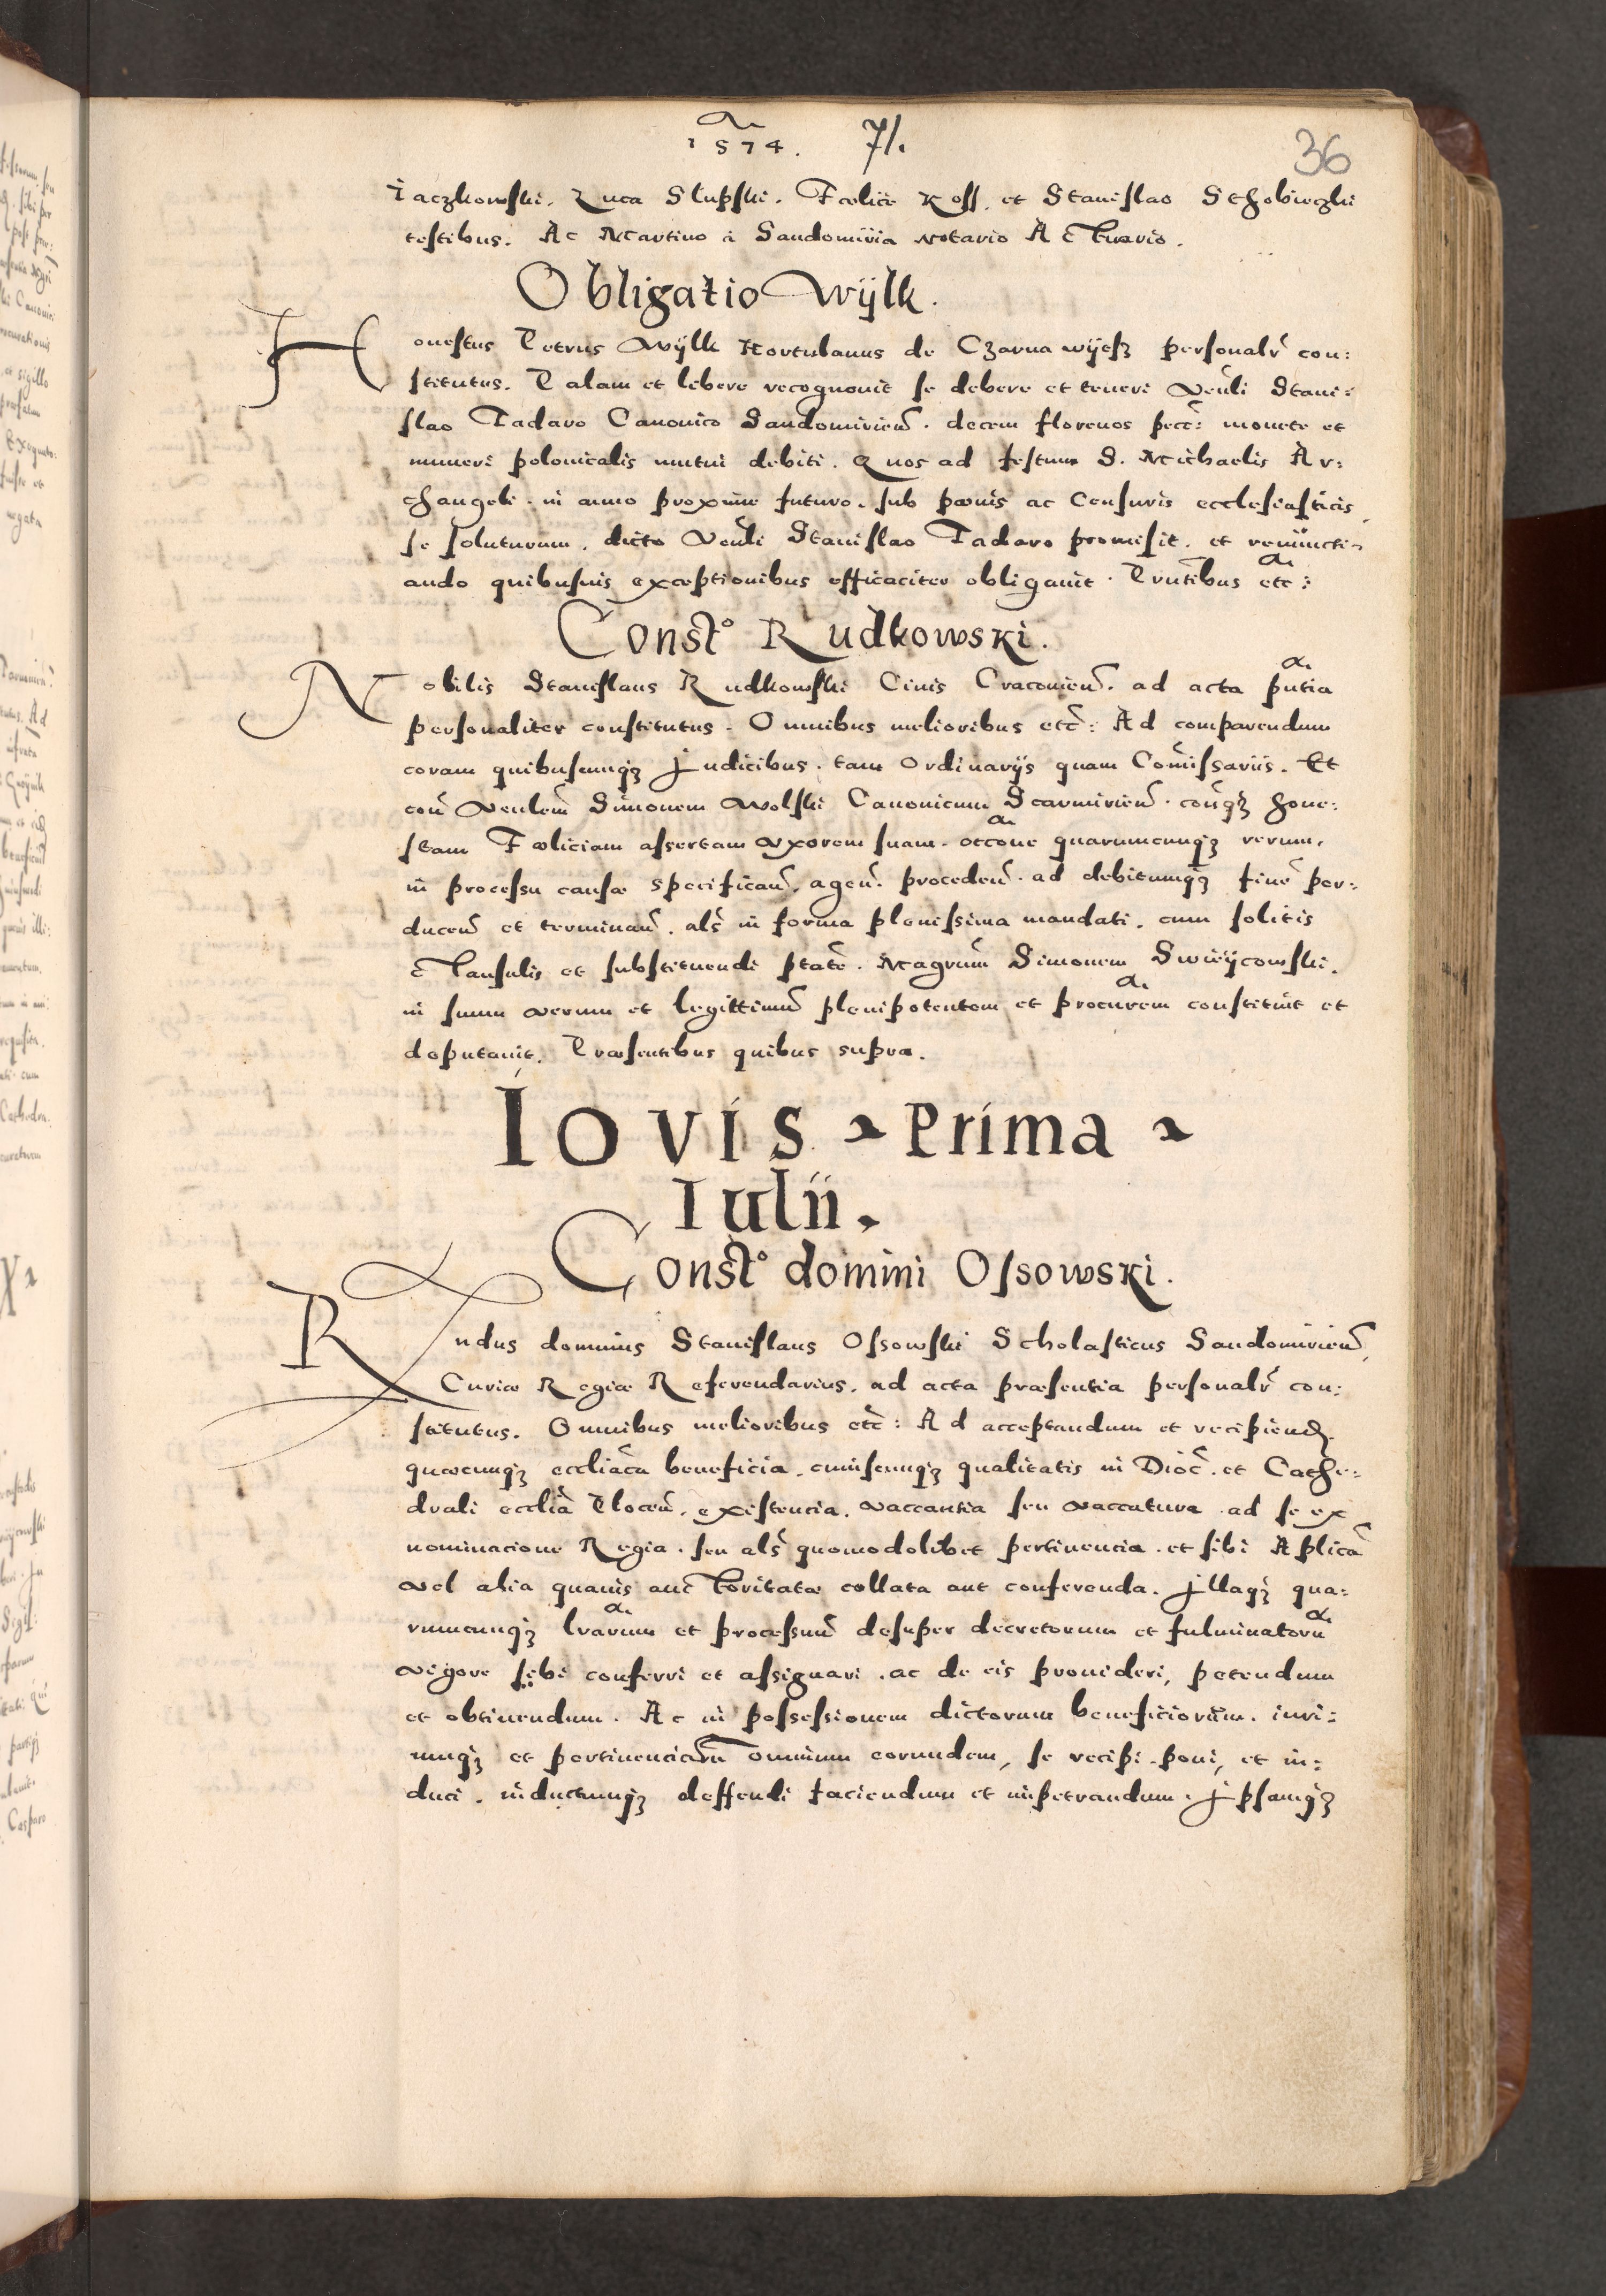 1574. 71.
36
Iaczkowski. Luca Slupski. Fœlice Koss. et Stanislao Schobieczki
testibus. Ac Martino à Sandomiria Notario Actuario.
Obligatio Wÿlk.
Honestus Petrus Wÿlk Hortulanus de Czarna wÿess personalr̃ con:
stitutus. Palam et libere recognouit se debere et teneri Veñli Stani:
slao Tadaro Canonico Sandomirieñ. decem florenos pecc: monete et
numeri polonicalis mutui debiti. Quos ad festum S. Michaelis Ar:
changeli. in anno proxime futuro. sub pœnis ac Censuris ecclesiasticis
se soluturum. dicto Veñli Stanislao Tadaro promisit. et renuncti-
ando quibusuis exceptionibus efficaciter obligauit. Prñtibus etc:
Constº Rudkowski.
Nobilis Stanislaus Rudkowski Ciuis Cracouieñ. ad acta pñtia
personaliter constitutus. Omnibus melioribus etc̃: Ad comparendum
coram quibuscunqȝ Judicibus. tam Ordinarijs quam Com̃issariis. Et
coñ Veñlem Simonem Wolski Canonicum Scarmirieñ. coñqȝ hone:
stam Fœliciam assertam Vxorem suam. occõne quarumcunqȝ rerum.
in processu causæ specificañ. ageñ. procedeñ. ad debitumqȝ finẽ per:
duceñ et terminañ. als̃ in forma plenissima mandati. cum solitis
Clausulis et substituendi ptãte. Magrum Simonem Swiÿcowski.
in suum verum et legittimũ plenipotentem et procurem constituit et
deputauit. Præsentibus quibus supra.
Iovis Prima
Iulii.
Constº domini Ossowski.
Rndus dominus Stanislaus Ossowski Scholasticus Sandomirieñ,
Curiæ Regiæ Referendarius. ad acta præsentia personalr̃ con:
stitutus. Omnibus melioribus etc̃: Ad acceptandum et recipiend.
quæcunqȝ eccliãca beneficia. cuiuscunqȝ qualitatis in Dioc̃. et Cathe:
drali eccliã Ploceñ. existencia. vaccantia seu vaccatura ad se ex
nominacione Regia. seu als̃ quomodolibet pertinencia. et sibi Aplicã
vel alia quauis auctoritate collata aut conferenda. Jllaqȝ qua:
rumcunqȝ lrarum et processuũ desuper decretorum et fulminatorũ
vigore sibi conferri et assignari. ac de eis prouideri, petendum
et obtinendum. Ac in possessionem dictorum beneficiorum. iuri:
umqȝ et pertinenciarũ omnium eorundem, se recipi. poni, et in:
duci. inductumqȝ deffendi faciendum et impetrandum. Jpsamqȝ